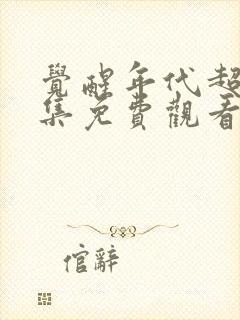 覺醒年代超
集免費觀看
倌辭